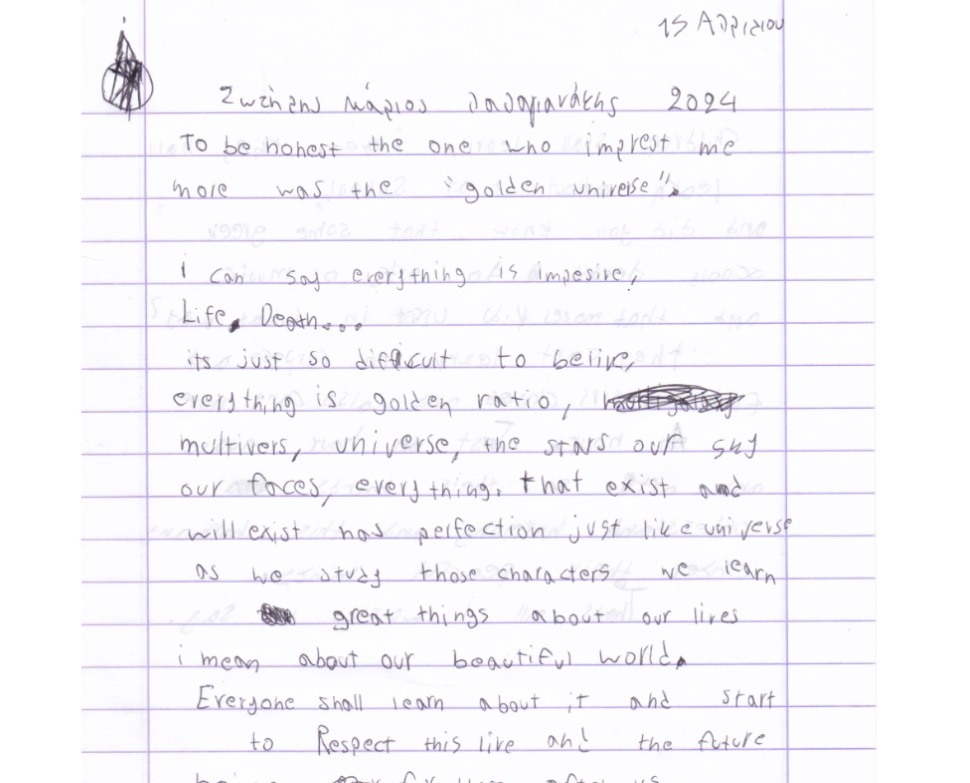 15 Απριλίου
Σωτήρης Μάριος Παπαγιανάκης 2024
To be honest the one who imprest me
more was the "golden universe".
i can say everything is impesive,
Life, Death...
its just so difficult to belive,
everything is golden ratio,
multivers, universe, the stars our sky
our faces, everything. that exist and
will exist has perfection just like universe
as we study those characters we learn
great things about our lives
i mean about our beautiful world.
Everyone shall learn about it and start
to Respect this live and the future
after us